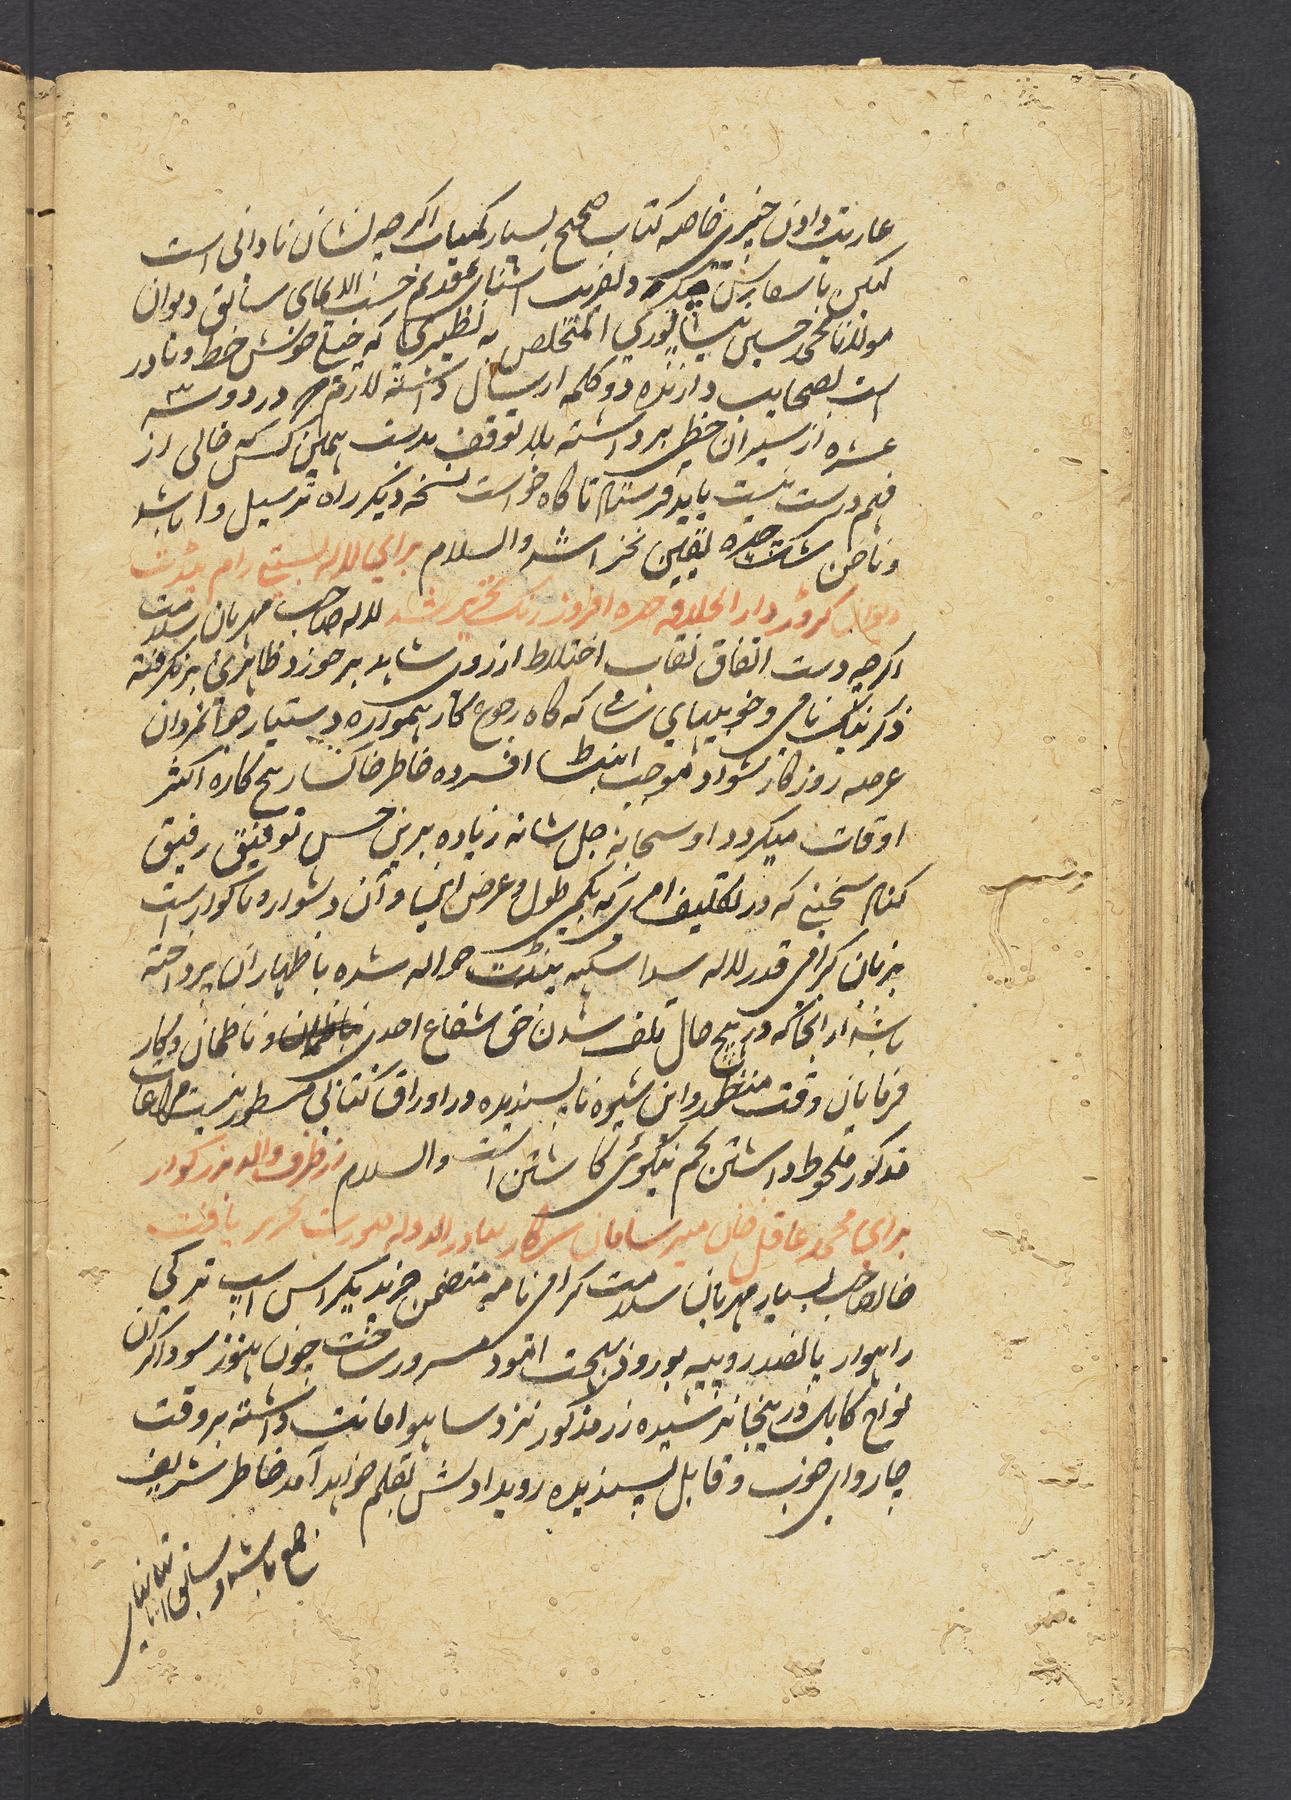 عاریت دادن چیزی خاصه کتاب صحیح بسیار کمیاب اگرچه نشان نادانی است
لیکن با سفارش دلفریب آشنای قدیم حسب الایمای سابق دیوان
مولانا محمد حسین نیشاپوری المتخلص به نظیری که خیلی خوش خط و نادر
است بصحابت دارنده دو کلمه ارسال داشته لازم در دو سه
عشره از سیر آن حظی برداشته بلا توقف بدست همین کس که خالی از
فهم درست نیست باید فرستاد تا گاه خواست نسخه دیگر راه ترسیل وا باشد
و ناخن شکت چهره یقین نخراشد والسلام برای لاله بستی رام پندت
دیوان کرور دار الخلافه چهره افروز رنگ تحریر شد لاله صاحب مهربان سلامت
اگرچه دست اتفاق نقاب اختلاط از روی شاهد برخورد ظاهری برنگرفته
ذکر نیک نامی و خوبیهای شما که گاه رجوع کار همواره دستیار همانمزدان
عرصه روزگار بشود موجب انبساط افسرده خاطر خاکسار هیچ کاره اکثر
اوقات میگردد او سبحانه جل شانه زیاده برین حسن توفیق رفیق
کناد سخنی که در تکلیف امری که بیکمی طول و عرض این و آن دشوار و ناگوار است
بزبان گرامی قدر لاله سدا سکهه پندت حواله شده باظهار آن پرداخته
باشد از آنجا که در هیچ حال تلف شدن حق شفاع احدی و ناظمان و کار
فرمایان وقت منظور و این شیوه ناپسندیده در اوراق کتابی مسطور نیست مراعات
مذکور ملحوظ داشتن تخم نیکوئی کاشتن است والسلام از طرف والد بزرگوار
برای محمد عاقل خان میر سامان سرکار بهادر الدوله صورت تحریر یافت
خانصاحب بسیار مهربان سلامت گرامی نامه متضمن خرید یکراس اسپ ترکی
راهوار پانصد روپیه بورود بهجت آمود مسرور ساخت چون هنوز سوداگران
نواح کابل در ینجا نرسیده زر مذکور نزد ساهو امانت داشته بروقت
چاروای خوب و قابل پسندیده رویدادش بقلم خواهد آمد خاطر شریف
جمع باشد